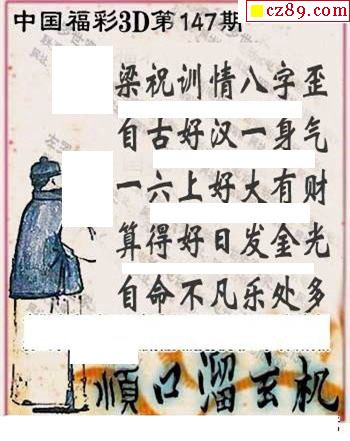 cz89.com
中国福彩3D第147期
梁祝训情八字歪
自古好汉一身气
一六上好大有财
算得好日发金光
自命不凡乐处多
順口溜玄机